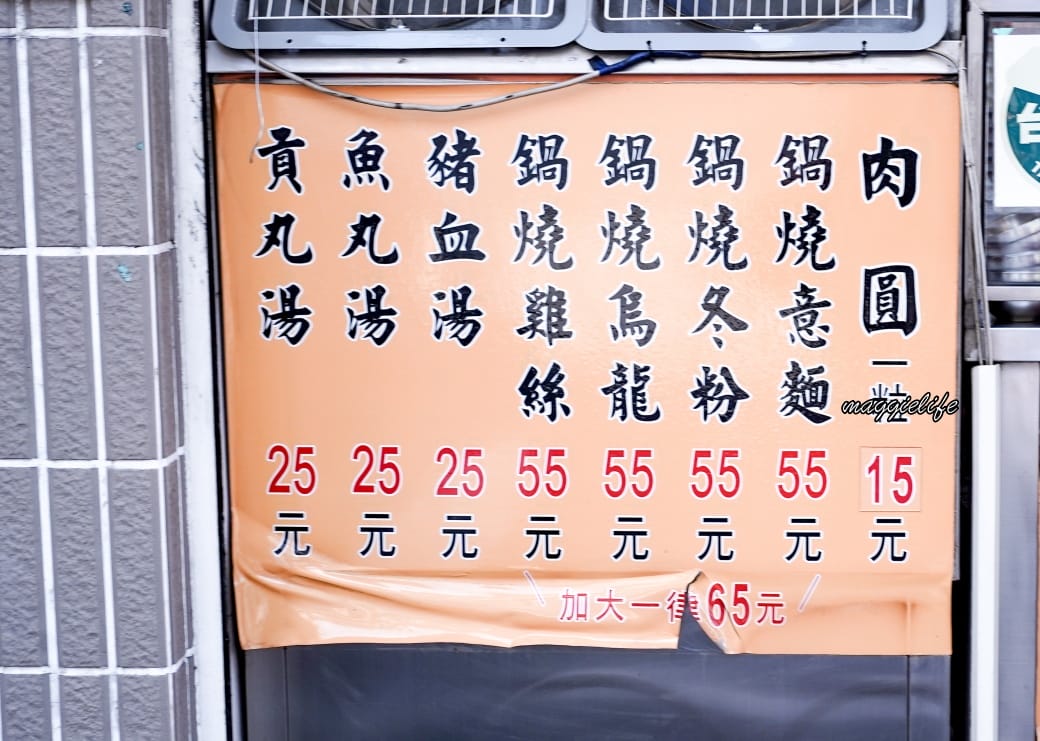 肉圓一粒15元
鍋燒意麵55元
鍋燒冬粉55元
鍋燒烏龍55元
鍋燒雞絲55元
豬血湯25元
魚丸湯25元
貢丸湯25元
加大一律65元
maggielife
台